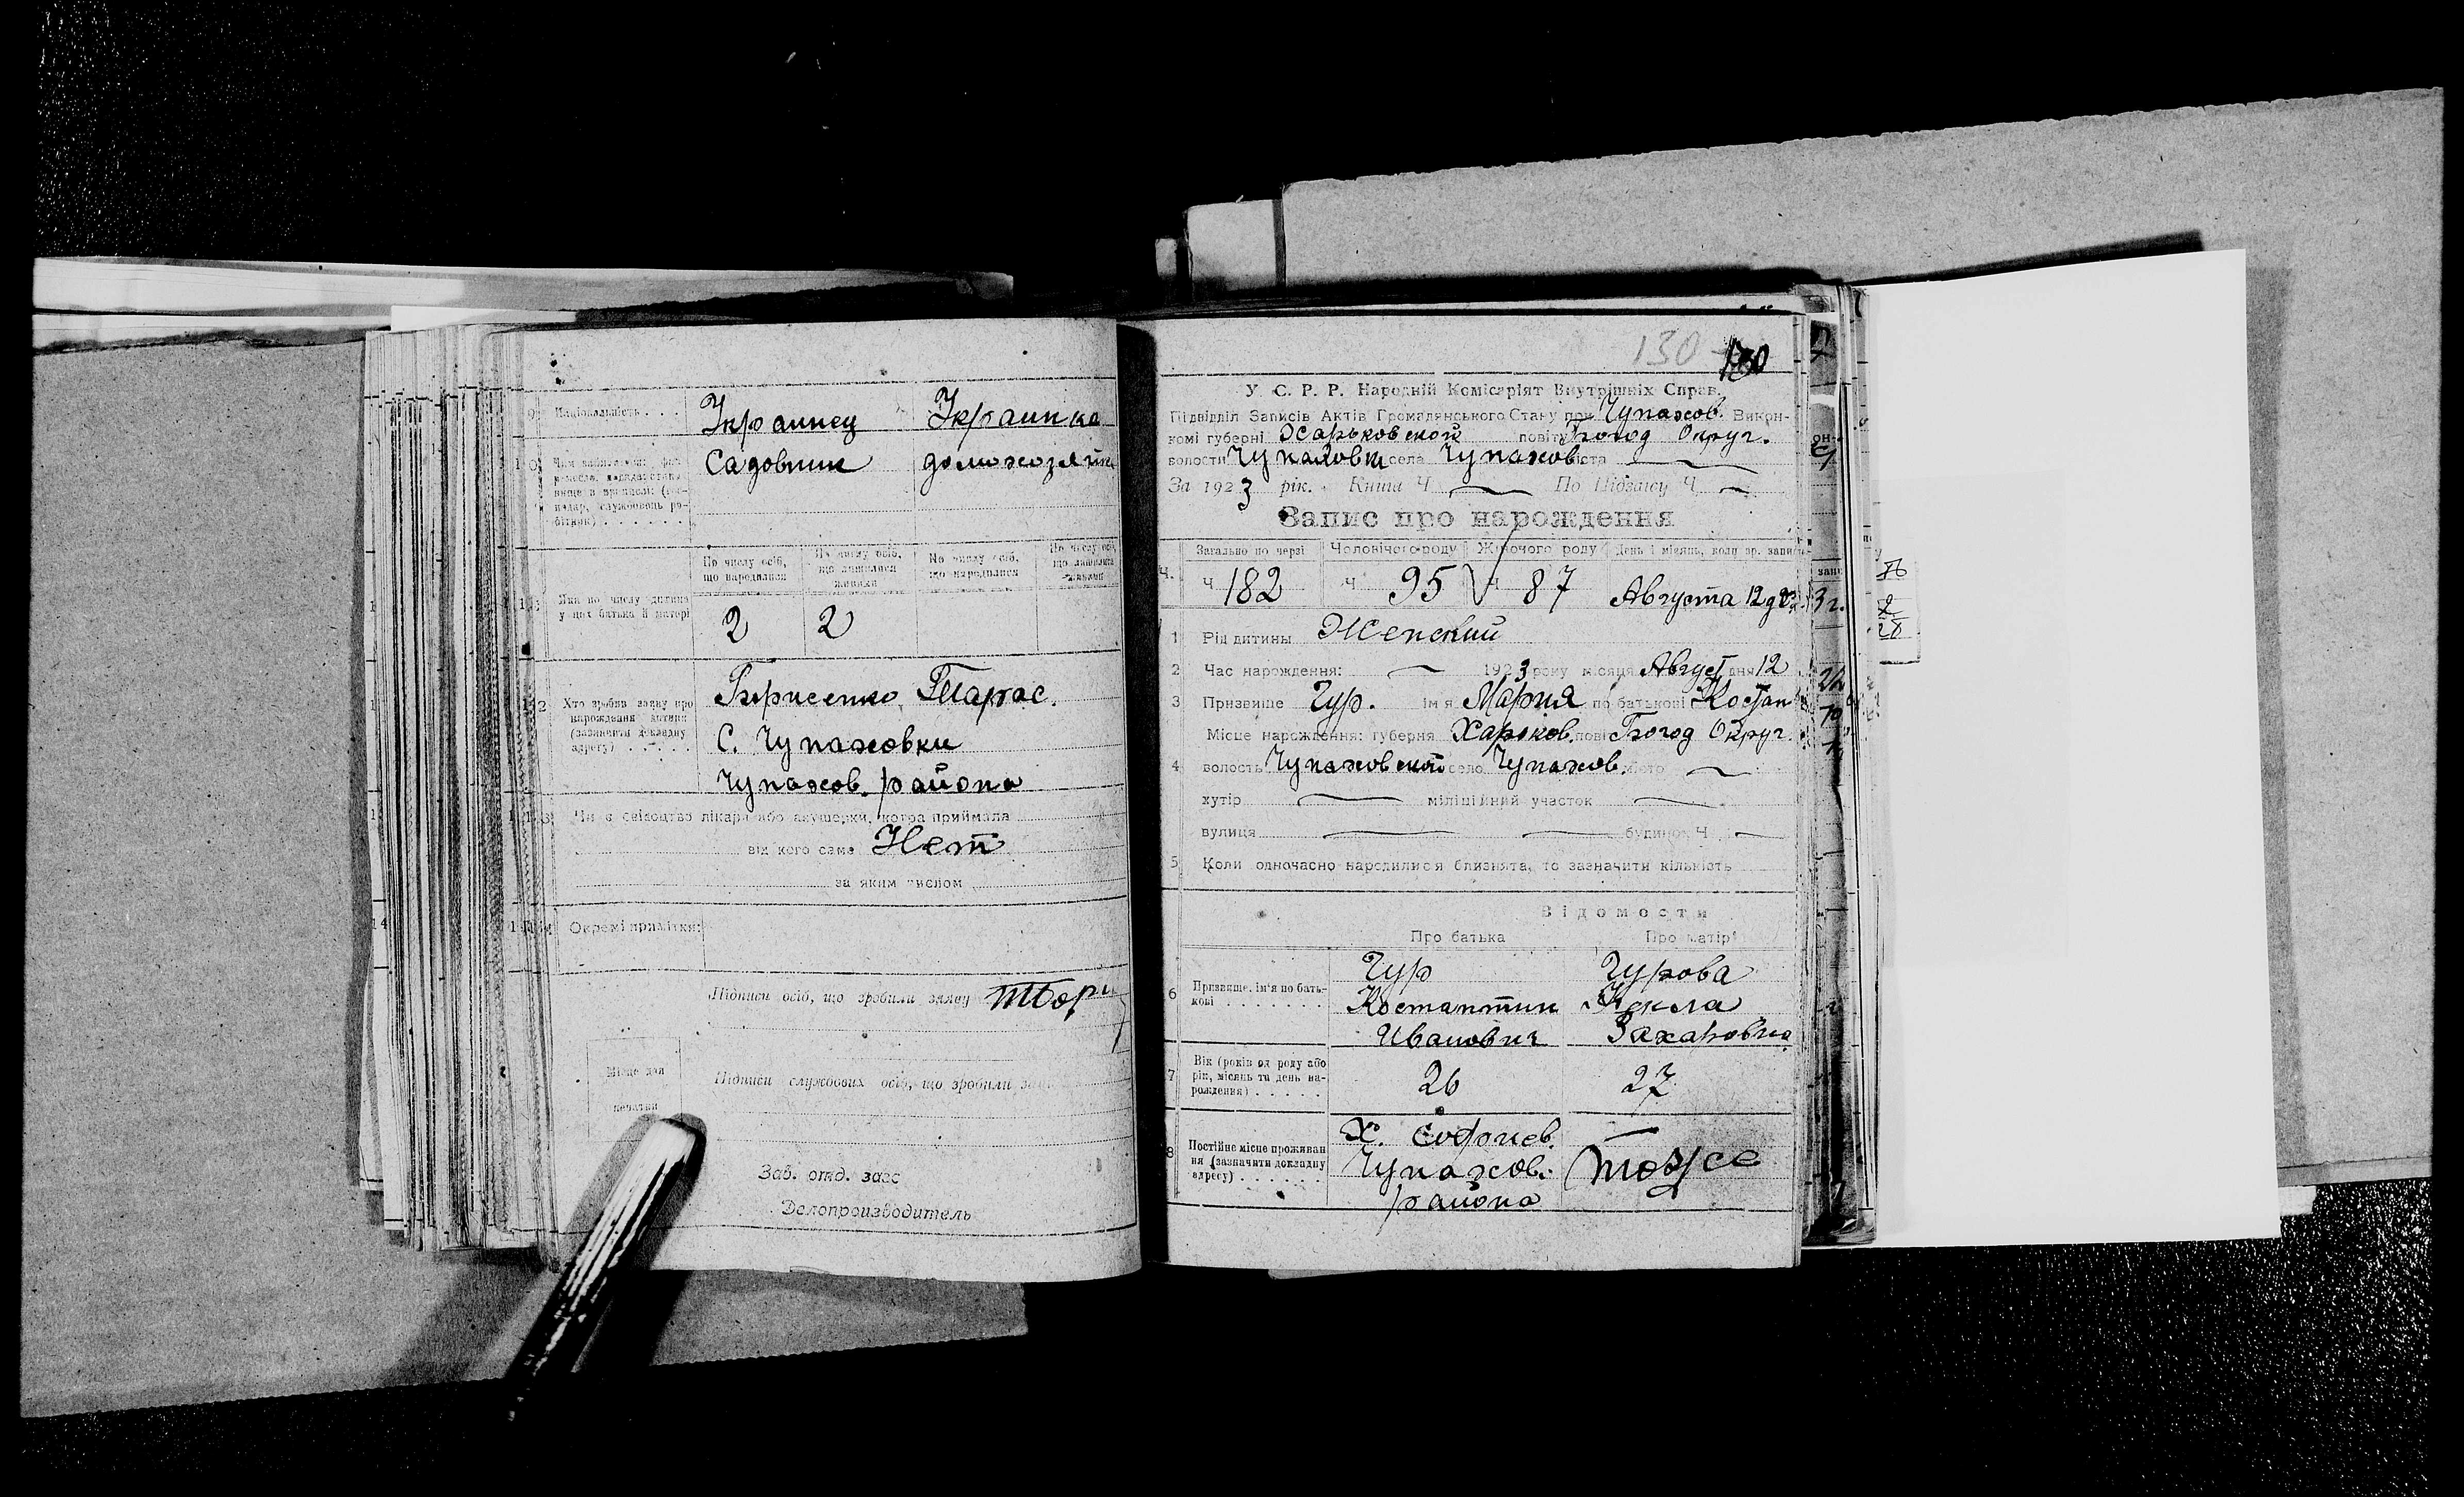 9 Національність . . . Украинец Украинка
10 Чим займається: фах, ремесло, Садовник домохозяйка
По числу осіб, що народилися По числу осіб, що лишилися живими По числу осіб, що народилися По числу осіб, що лишилися живими
11 Яка по числу дитина у цих батька й матері 2 2
12 Хто зробив заяву про нарождення дитини (зазначити докладну адресу) . . . . . Борисенко Тарас.
С. Чупаховки
Чупахов. района
13 Чи є свідоцтво лікаря або акушерки, котра приймала
від кого саме Нет
за яким числом
14 Окремі примітки:
Підписи осіб, що зробили заяву ТБори
Місце для печатки
Підписи службових осіб, що зробили
Зав. отд. загс
Делопроизводитель
130 130
У. С. Р. Р. Народній Комісаріят Внутрішніх Справ.
Підвідділ Записів Актів Громадянського Стану при Чупахов. Викон-
комі губерні Харьковской повіту Богод Округ.
волости Чупаховки села Чупахов міста
За 1923 рік. Книга Ч. По Підзагсу Ч.
Запис про нарождення
Загально по черзі Чоловічого роду Жіночого роду День і місяць, коли зр. запис
Ч 182 Ч 95 Ч 87 Августа 12 д
1 Рід дитини Женский
2 Час нарождення: 1923 року місяця Август дня 12
3 Призвище Чур. ім'я Мария по батькові Костан
Місце нарождення: губерня Харьков. пов. Богод Округ.
4 волость Чупаховской село Чупахов. місто
хутір міліційний участок
вулиця будинок Ч.
5 Коли одночасно народилися близнята, то зазначити кількість
Відомости
Про батька Про матір
6 Призвище, ім'я по батькові . . . . . . . Чур Чурова
Костантин Фекла
Иванович Захаровна
7 Вік (років од роду або рік, місяць та день нарождення) . . . . . 26 27
8 Постійне місце проживання (зазначити докладну адресу) . . . . . . Х. Софиев.
Чупахов. тоже
района